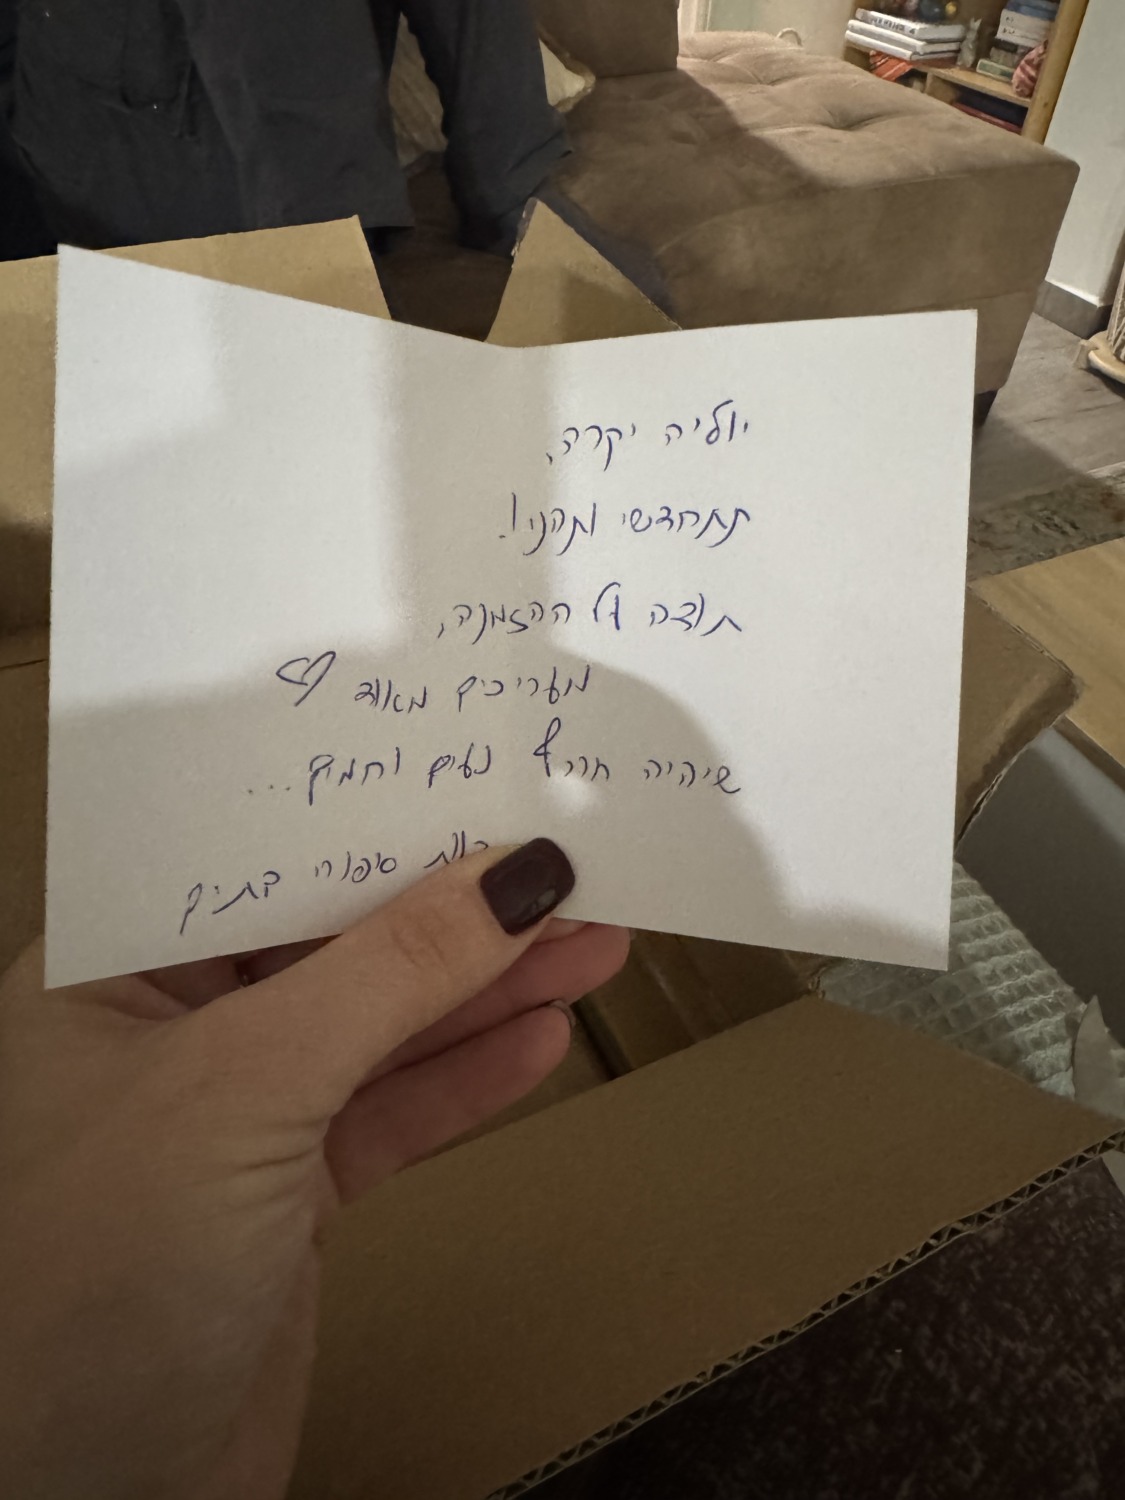 יוליה יקרה,
תתחדשי ותהני!
תודה על ההזמנה,
מעריכים מאוד ♡
שיהיה חורף נעים וחמים...
סיפורי בתים